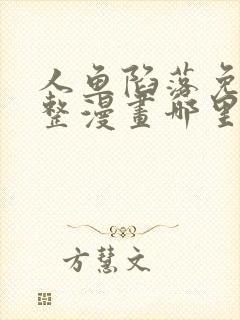 人鱼陷落免
整漫畫哪里
方慧文